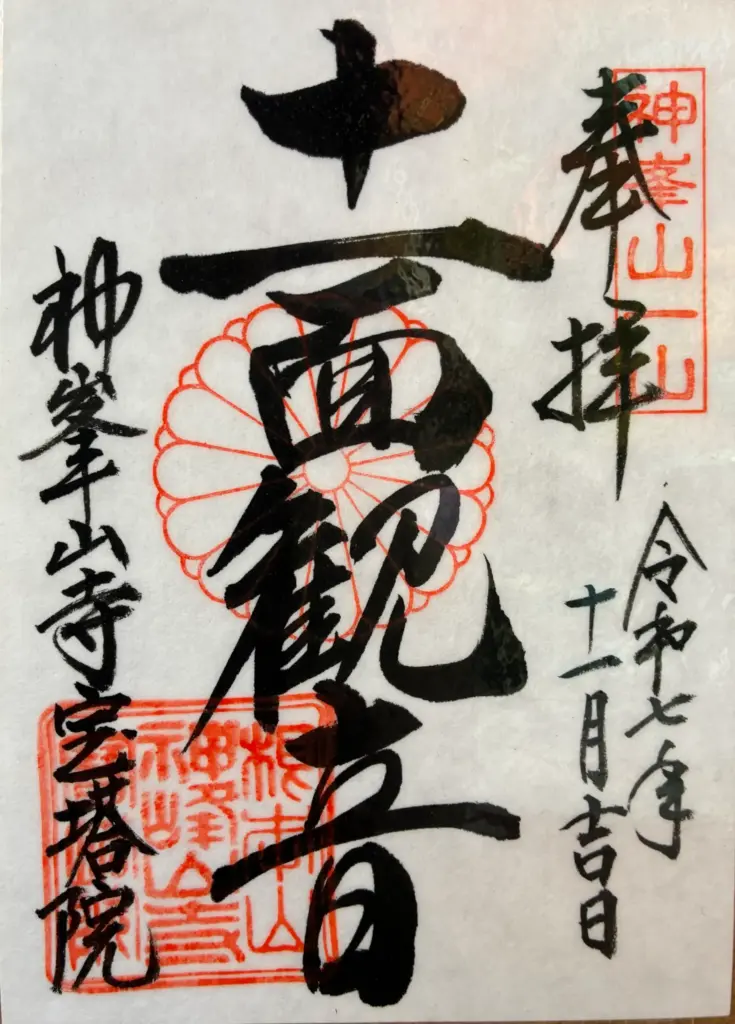 奉拝
神峯山一山
令和七年
十一月吉日
十一面観音
神峯山寺宝塔院
根本山
神峰山寺